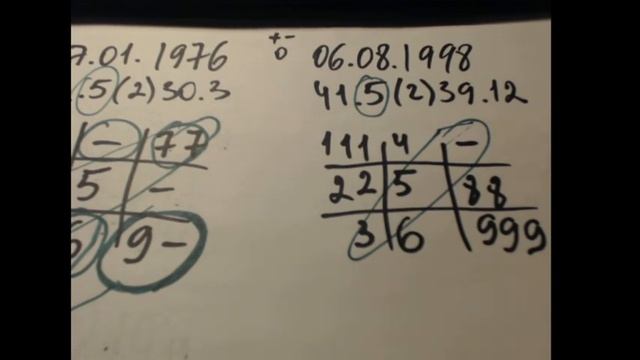 7.01.1976
.5(2)30.3
- 77
5 -
6 9-
+-
0
06.08.1998
41.5(2)39.12
111 4 -
22 5 88
3 6 999